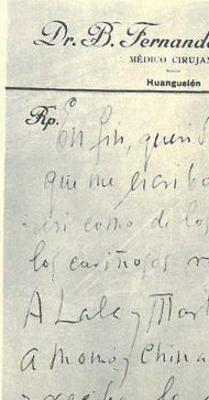 Dr. B. Fernand
MÉDICO CIRUJAN
Huanguelén
Rp.
En fin, querid
que me escriba
como de los
los cariñosos
A Lala y Mart
a Momo y China
y reciba